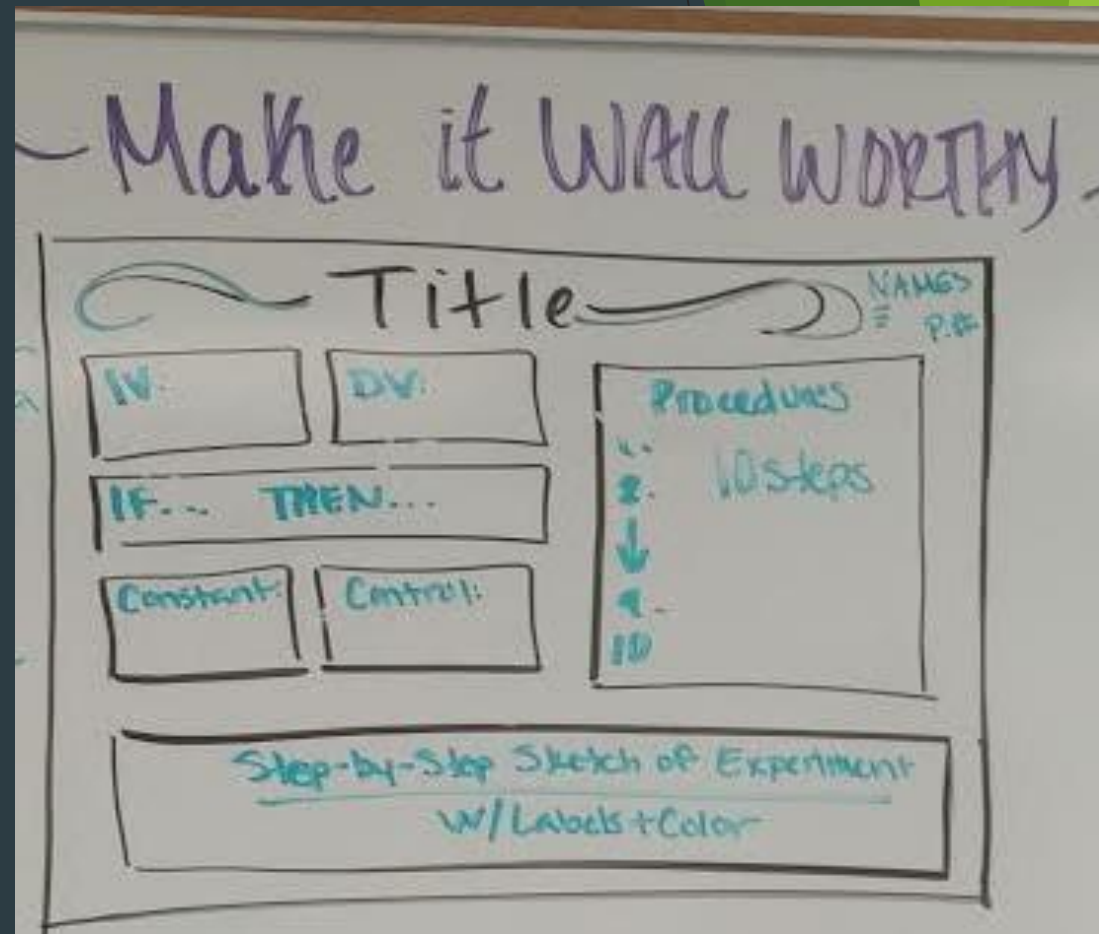 Make it WALL WORTHY
Title
NAMES
P.#
IV:
DV:
IF... THEN...
Constant:
Control:
Procedures
10 steps
1.
2.
9.
10
Step-by-Step Sketch of Experiment
W/Labels+Color